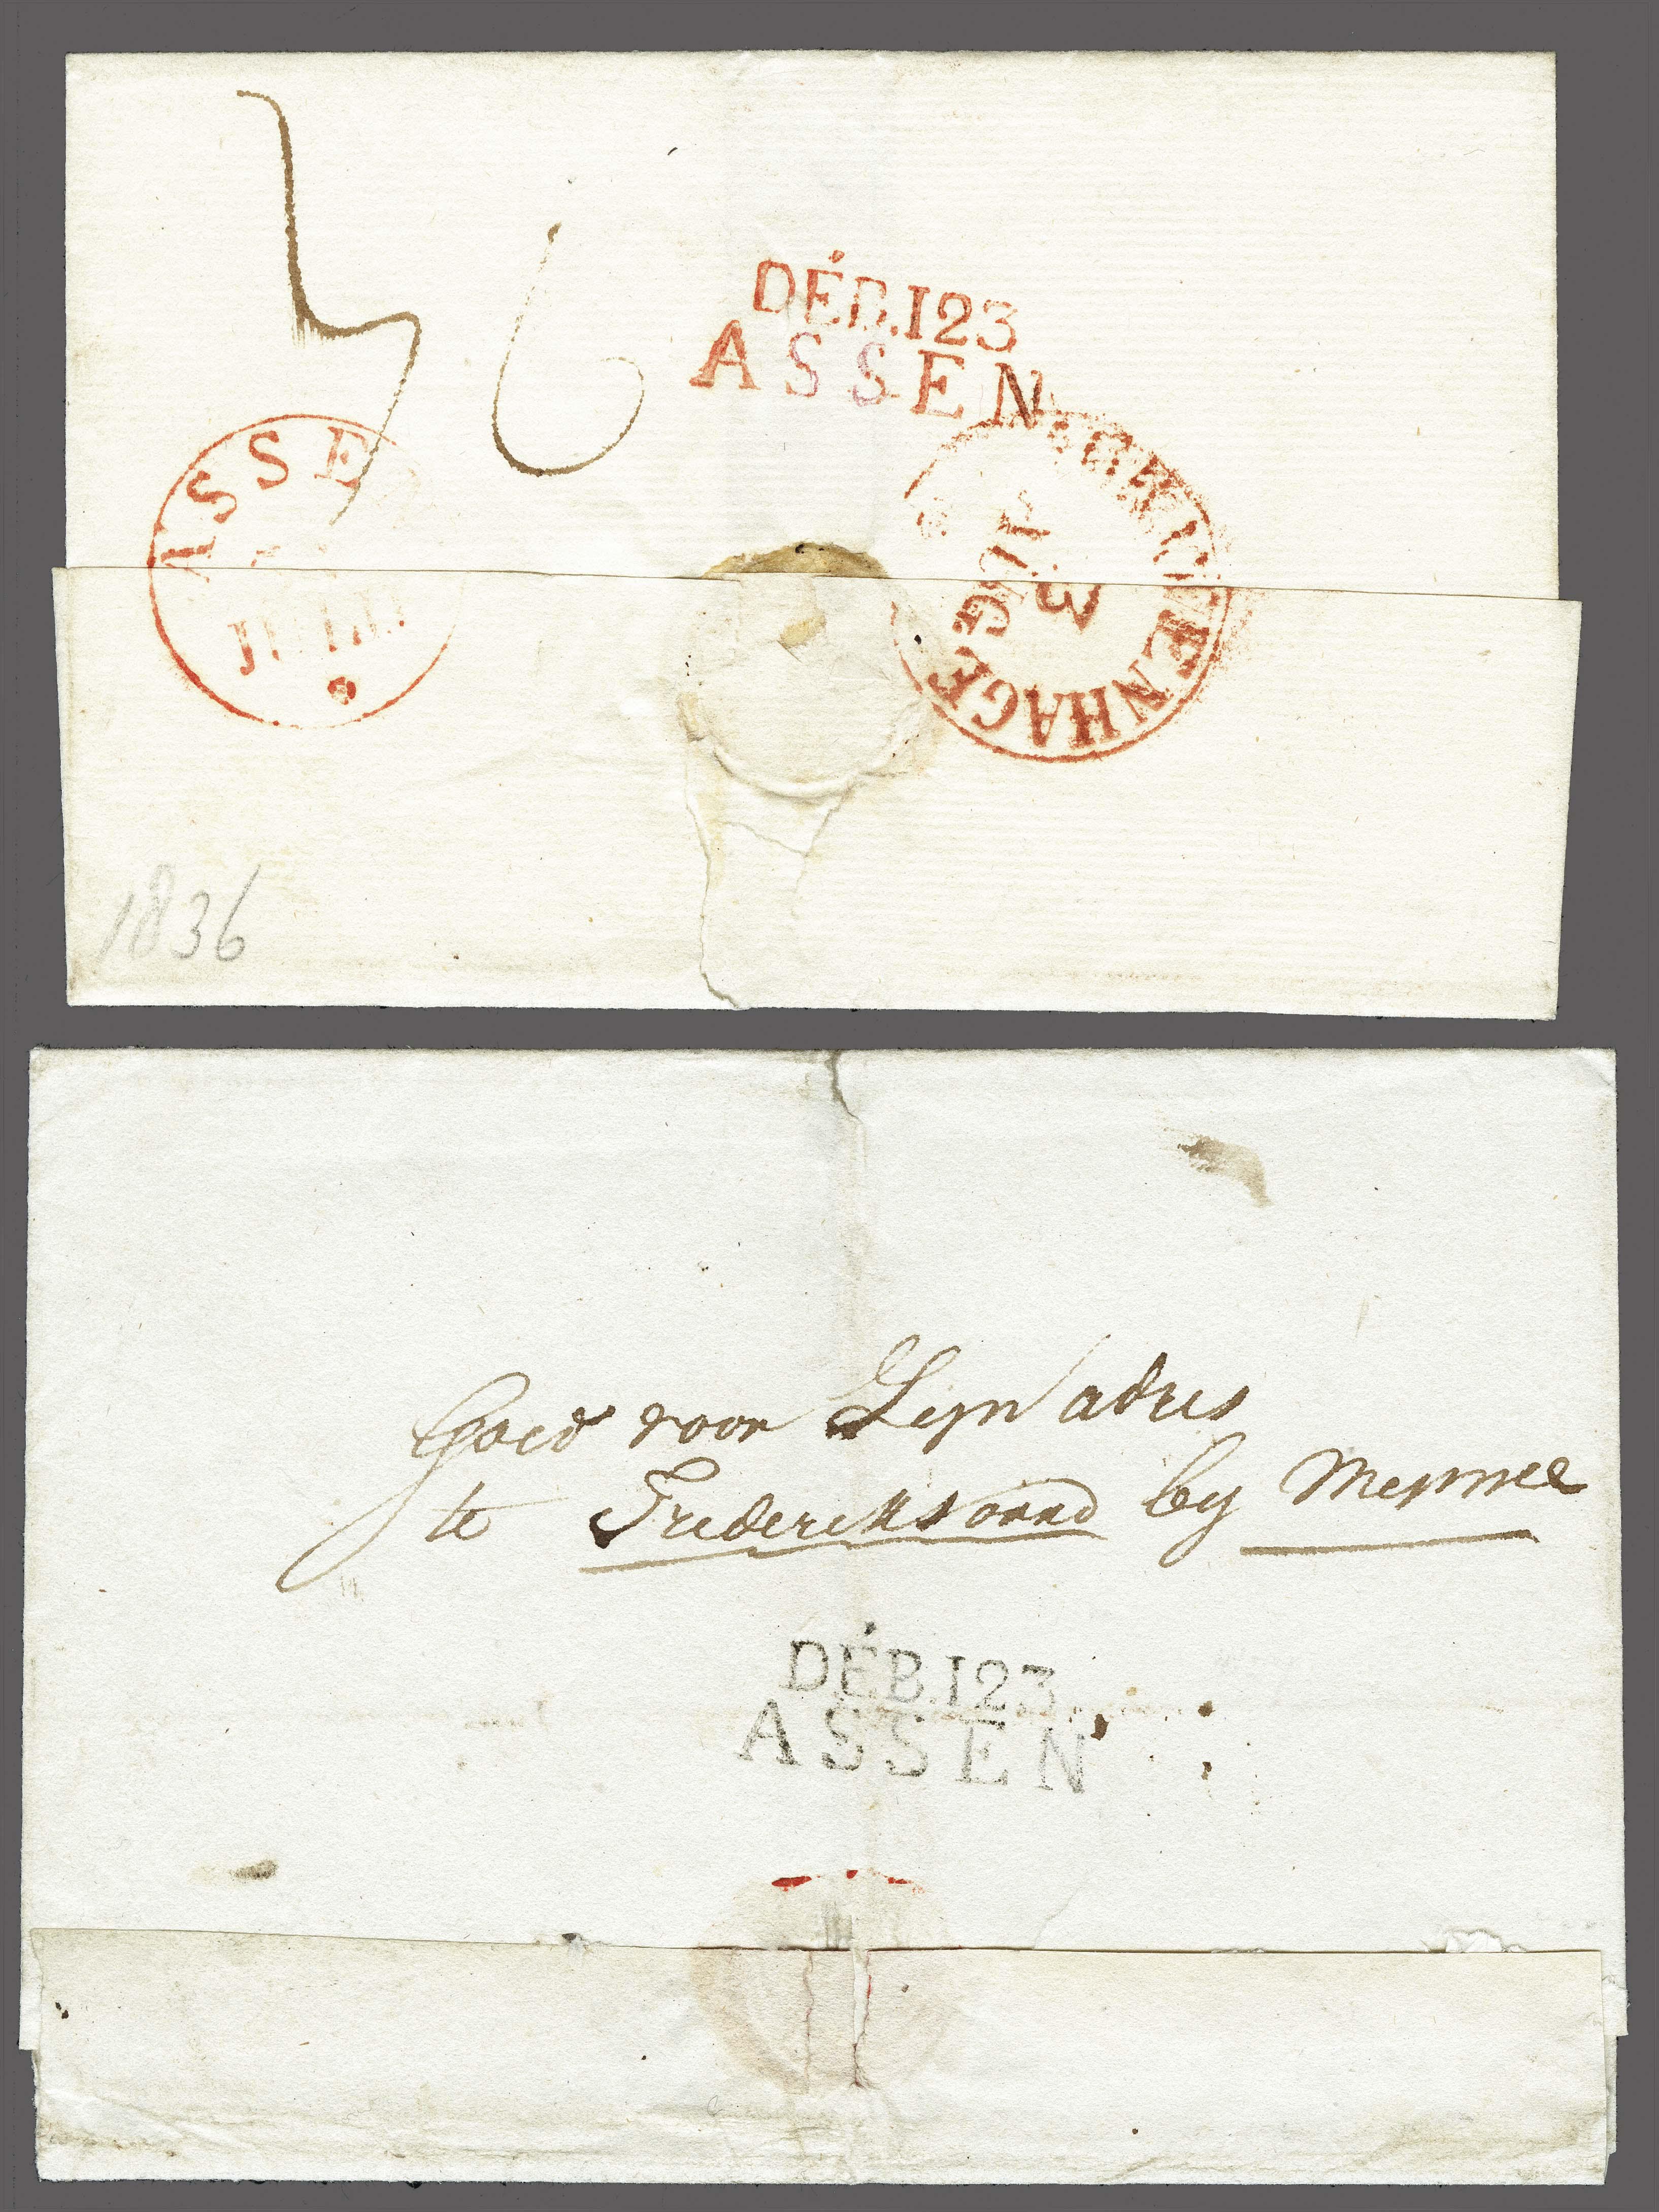 DÉB.123
ASSEN
ASSE
'SGRAVENHAGE
3
AUG
1836
Goed voor Zijn adres
te Frederiksoord by Meppel
DÉB.123
ASSEN